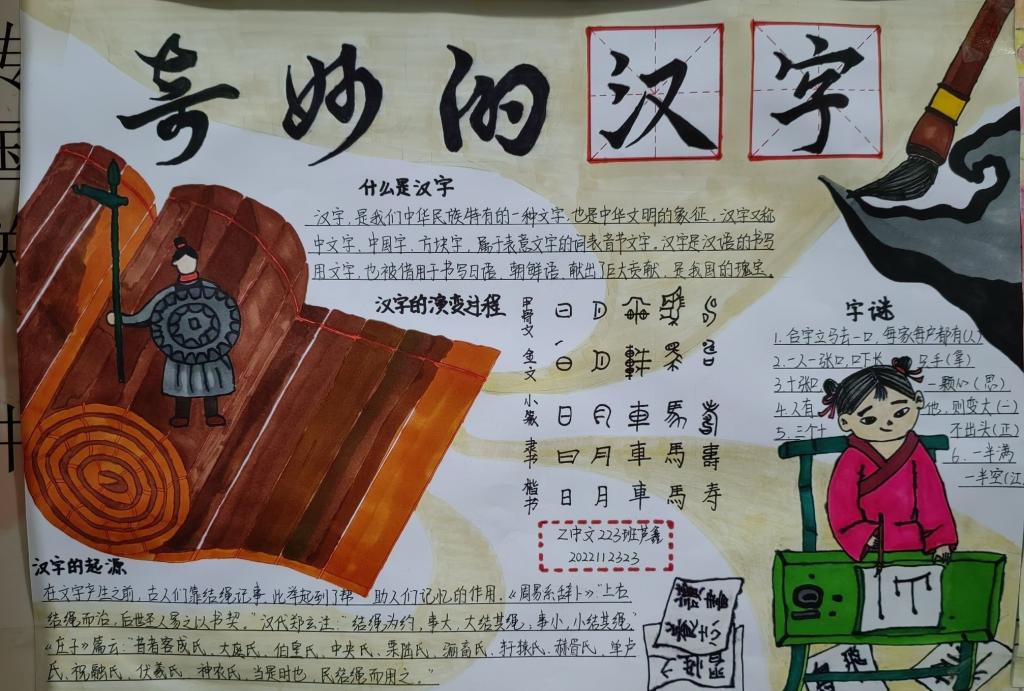 奇妙的汉字
什么是汉字
汉字,是我们中华民族特有的一种文字,也是中华文明的象征,汉字又称
中文字、中国字、方块字,属于表意文字的词素音节文字。汉字是汉语的书写
用文字,也被借用于书写日语、朝鲜语,献出了巨大贡献,是我国的瑰宝。
汉字的演变过程
甲骨文
金文
小篆
隶书 日 月 車 馬 壽
楷书 日 月 車 馬 寿
字谜
1.合字立马去一口,每家每户都有(人)
2.一人一张口,口下长 只手(拿)
3.十张口 一颗心(思)
4.人有 他,则变大(一)
5.三个 不出头(正)
6.一半满
一半空(江
Z中文223班芦鑫
2022112323
汉字的起源
在文字产生之前,古人们靠结绳记事,此举起到了帮 助人们记忆的作用。《周易系辞卜》"上右
结绳而治,后世圣人易之以书契。"汉代郑玄注:"结绳为约,事大,大结其绳;事小,小结其绳"
《庄子》篇云:"昔者容成氏、大庭氏、伯皇氏、中央氏、栗陆氏、骊畜氏、轩辕氏、赫胥氏、尊卢
氏、祝融氏、伏羲氏、神农氏,当是时也,民结绳而用之。"